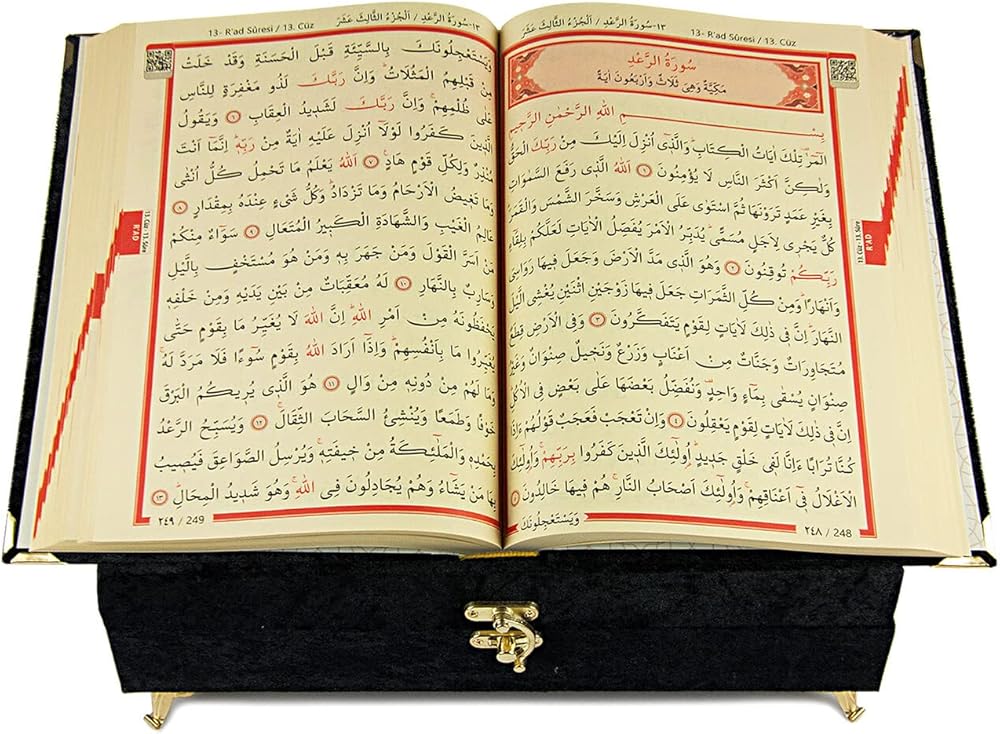 ١٣-سُورَةُ الرَّعْدِ / اَلْجُزْءُ الثَّالِثَ عَشَرَ
13- R'ad Sûresi / 13. Cüz
سُورَةُ الرَّعْدِ
مَكِّيَّةٌ وَهِىَ ثَلَاثٌ وَاَرْبَعُونَ اٰيَةً
بِسْمِ اللّٰهِ الرَّحْمٰنِ الرَّحِيمِ
الٓمٓرٰ تِلْكَ اٰيَاتُ الْكِتَابِۜ وَالَّذٖٓى اُنْزِلَ اِلَيْكَ مِنْ رَبِّكَ الْحَقُّ
وَلٰكِنَّ اَكْثَرَ النَّاسِ لَا يُؤْمِنُونَ ﴿١﴾ اَللّٰهُ الَّذٖى رَفَعَ السَّمٰوَاتِ
بِغَيْرِ عَمَدٍ تَرَوْنَهَا ثُمَّ اسْتَوٰى عَلَى الْعَرْشِ وَسَخَّرَ الشَّمْسَ وَالْقَمَرَۜ
كُلٌّ يَجْرٖى لِاَجَلٍ مُسَمًّىۜ يُدَبِّرُ الْاَمْرَ يُفَصِّلُ الْاٰيَاتِ لَعَلَّكُمْ بِلِقَٓاءِ
رَبِّكُمْ تُوقِنُونَ ﴿٢﴾ وَهُوَ الَّذٖى مَدَّ الْاَرْضَ وَجَعَلَ فٖيهَا رَوَاسِىَ
وَاَنْهَارًاۜ وَمِنْ كُلِّ الثَّمَرَاتِ جَعَلَ فٖيهَا زَوْجَيْنِ اثْنَيْنِ يُغْشِى الَّيْلَ
النَّهَارَۜ اِنَّ فٖى ذٰلِكَ لَاٰيَاتٍ لِقَوْمٍ يَتَفَكَّرُونَ ﴿٣﴾ وَفِى الْاَرْضِ قِطَعٌ
مُتَجَاوِرَاتٌ وَجَنَّاتٌ مِنْ اَعْنَابٍ وَزَرْعٌ وَنَخٖيلٌ صِنْوَانٌ وَغَيْرُ
صِنْوَانٍ يُسْقٰى بِمَٓاءٍ وَاحِدٍ وَنُفَضِّلُ بَعْضَهَا عَلٰى بَعْضٍ فِى الْاُكُلِۜ
اِنَّ فٖى ذٰلِكَ لَاٰيَاتٍ لِقَوْمٍ يَعْقِلُونَ ﴿٤﴾ وَاِنْ تَعْجَبْ فَعَجَبٌ قَوْلُهُمْ ءَاِذَا
كُنَّا تُرَابًا ءَاِنَّا لَفٖى خَلْقٍ جَدٖيدٍۜ اُو۬لٰٓئِكَ الَّذٖينَ كَفَرُوا بِرَبِّهِمْۚ وَاُو۬لٰٓئِكَ
الْاَغْلَالُ فٖٓى اَعْنَاقِهِمْۚ وَاُو۬لٰٓئِكَ اَصْحَابُ النَّارِۚ هُمْ فٖيهَا خَالِدُونَ ﴿٥﴾
وَيَسْتَعْجِلُونَكَ
٢٤٨ / 248
13. Cüz - 13. Sûre
R'AD
١٣-سُورَةُ الرَّعْدِ / اَلْجُزْءُ الثَّالِثَ عَشَرَ
13- R'ad Sûresi / 13. Cüz
وَيَسْتَعْجِلُونَكَ بِالسَّيِّئَةِ قَبْلَ الْحَسَنَةِ وَقَدْ خَلَتْ
مِنْ قَبْلِهِمُ الْمَثُلَاتُۜ وَاِنَّ رَبَّكَ لَذُو مَغْفِرَةٍ لِلنَّاسِ
عَلٰى ظُلْمِهِمْۚ وَاِنَّ رَبَّكَ لَشَدٖيدُ الْعِقَابِ ﴿٦﴾ وَيَقُولُ
الَّذٖينَ كَفَرُوا لَوْلَٓا اُنْزِلَ عَلَيْهِ اٰيَةٌ مِنْ رَبِّهٖۜ اِنَّمَٓا اَنْتَ
مُنْذِرٌ وَلِكُلِّ قَوْمٍ هَادٍ ﴿٧﴾ اَللّٰهُ يَعْلَمُ مَا تَحْمِلُ كُلُّ اُنْثٰى
وَمَا تَغٖيضُ الْاَرْحَامُ وَمَا تَزْدَادُۜ وَكُلُّ شَىْءٍ عِنْدَهُ بِمِقْدَارٍ ﴿٨﴾
عَالِمُ الْغَيْبِ وَالشَّهَادَةِ الْكَبٖيرُ الْمُتَعَالِ ﴿٩﴾ سَوَٓاءٌ مِنْكُمْ
مَنْ اَسَرَّ الْقَوْلَ وَمَنْ جَهَرَ بِهٖ وَمَنْ هُوَ مُسْتَخْفٍ بِالَّيْلِ
وَسَارِبٌ بِالنَّهَارِ ﴿١٠﴾ لَهُ مُعَقِّبَاتٌ مِنْ بَيْنِ يَدَيْهِ وَمِنْ خَلْفِهٖ
يَحْفَظُونَهُ مِنْ اَمْرِ اللّٰهِۜ اِنَّ اللّٰهَ لَا يُغَيِّرُ مَا بِقَوْمٍ حَتّٰى
يُغَيِّرُوا مَا بِاَنْفُسِهِمْۜ وَاِذَٓا اَرَادَ اللّٰهُ بِقَوْمٍ سُٓوءًا فَلَا مَرَدَّ لَهُۚ
وَمَا لَهُمْ مِنْ دُونِهٖ مِنْ وَالٍ ﴿١١﴾ هُوَ الَّذٖى يُرٖيكُمُ الْبَرْقَ
خَوْفًا وَطَمَعًا وَيُنْشِئُ السَّحَابَ الثِّقَالَۚ ﴿١٢﴾ وَيُسَبِّحُ الرَّعْدُ
بِحَمْدِهٖ وَالْمَلٰٓئِكَةُ مِنْ خٖيفَتِهٖۚ وَيُرْسِلُ الصَّوَاعِقَ فَيُصٖيبُ
بِهَا مَنْ يَشَٓاءُ وَهُمْ يُجَادِلُونَ فِى اللّٰهِۚ وَهُوَ شَدٖيدُ الْمِحَالِۜ ﴿١٣﴾
٢٤٩ / 249
13. Cüz - 13. Sûre
R'AD